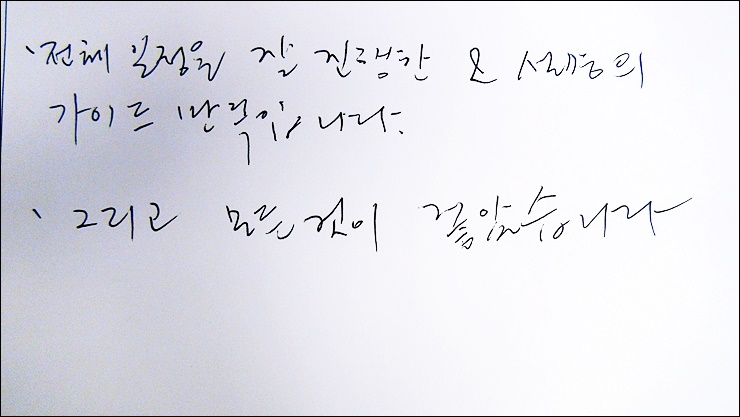 · 전체 일정을 잘 진행한 & 설명의
가이드 만족입니다.
· 그리고 모든것이 즐거웠습니다